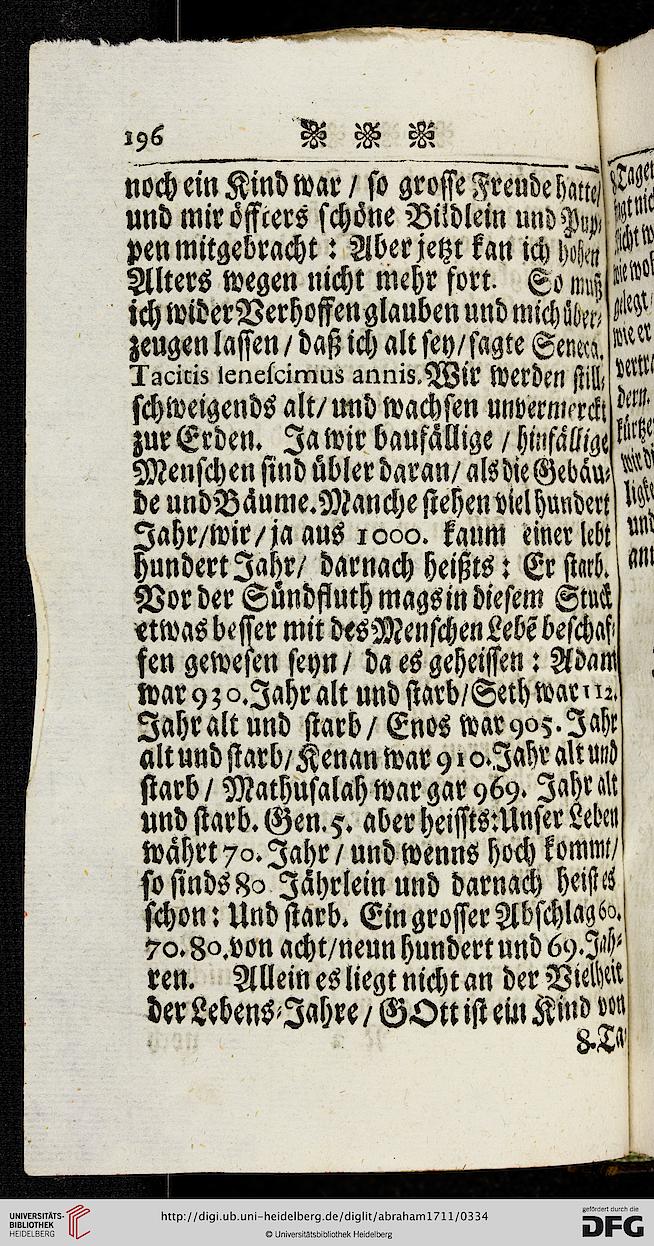 196
noch ein Kind war / so grosse Freude hatte/
und mir öffters schöne Bildlein und Pup-
pen mitgebracht : Aber jetzt kan ich hohen
Alters wegen nicht mehr fort. So muß
ich wider Verhoffen glauben und mich über-
zeugen lassen / daß ich alt sey/ sagte Seneca.
Tacitis senescimus annis. Wir werden still-
schweigends alt/ und wachsen unvermerckt
zur Erden. Ja wir baufällige / hinfällige
Menschen sind übler daran/ als die Gebäu-
de und Bäume. Manche stehen viel hundert
Jahr/wir / ja aus 1000. kaum einer lebt
hundert Jahr/ darnach heißts : Er starb.
Vor der Sündfluth mags in diesem Stuck
etwas besser mit des Menschen Lebē beschaf-
fen gewesen seyn / da es geheissen : Adam
war 930. Jahr alt und starb/ Seth war 112.
Jahr alt und starb / Enos war 905. Jahr
alt und starb/ Kenan war 910. Jahr alt und
starb / Mathusalah war gar 969. Jahr alt
und starb. Gen. 5. aber heissts: Unser Leben
währt 70. Jahr / und wenns hoch kommt/
so sinds 80 Jährlein und darnach heist es
schon : Und starb. Ein grosser Abschlag 60.
70. 80. von acht/neun hundert und 69. Jah-
ren. Allein es liegt nicht an der Vielheit
der Lebens-Jahre / GOtt ist ein Kind von
8. Ta-
UNIVERSITÄTS-
BIBLIOTHEK
HEIDELBERG
http://digi.ub.uni-heidelberg.de/diglit/abraham1711/0334
© Universitätsbibliothek Heidelberg
gefördert durch die
DFG